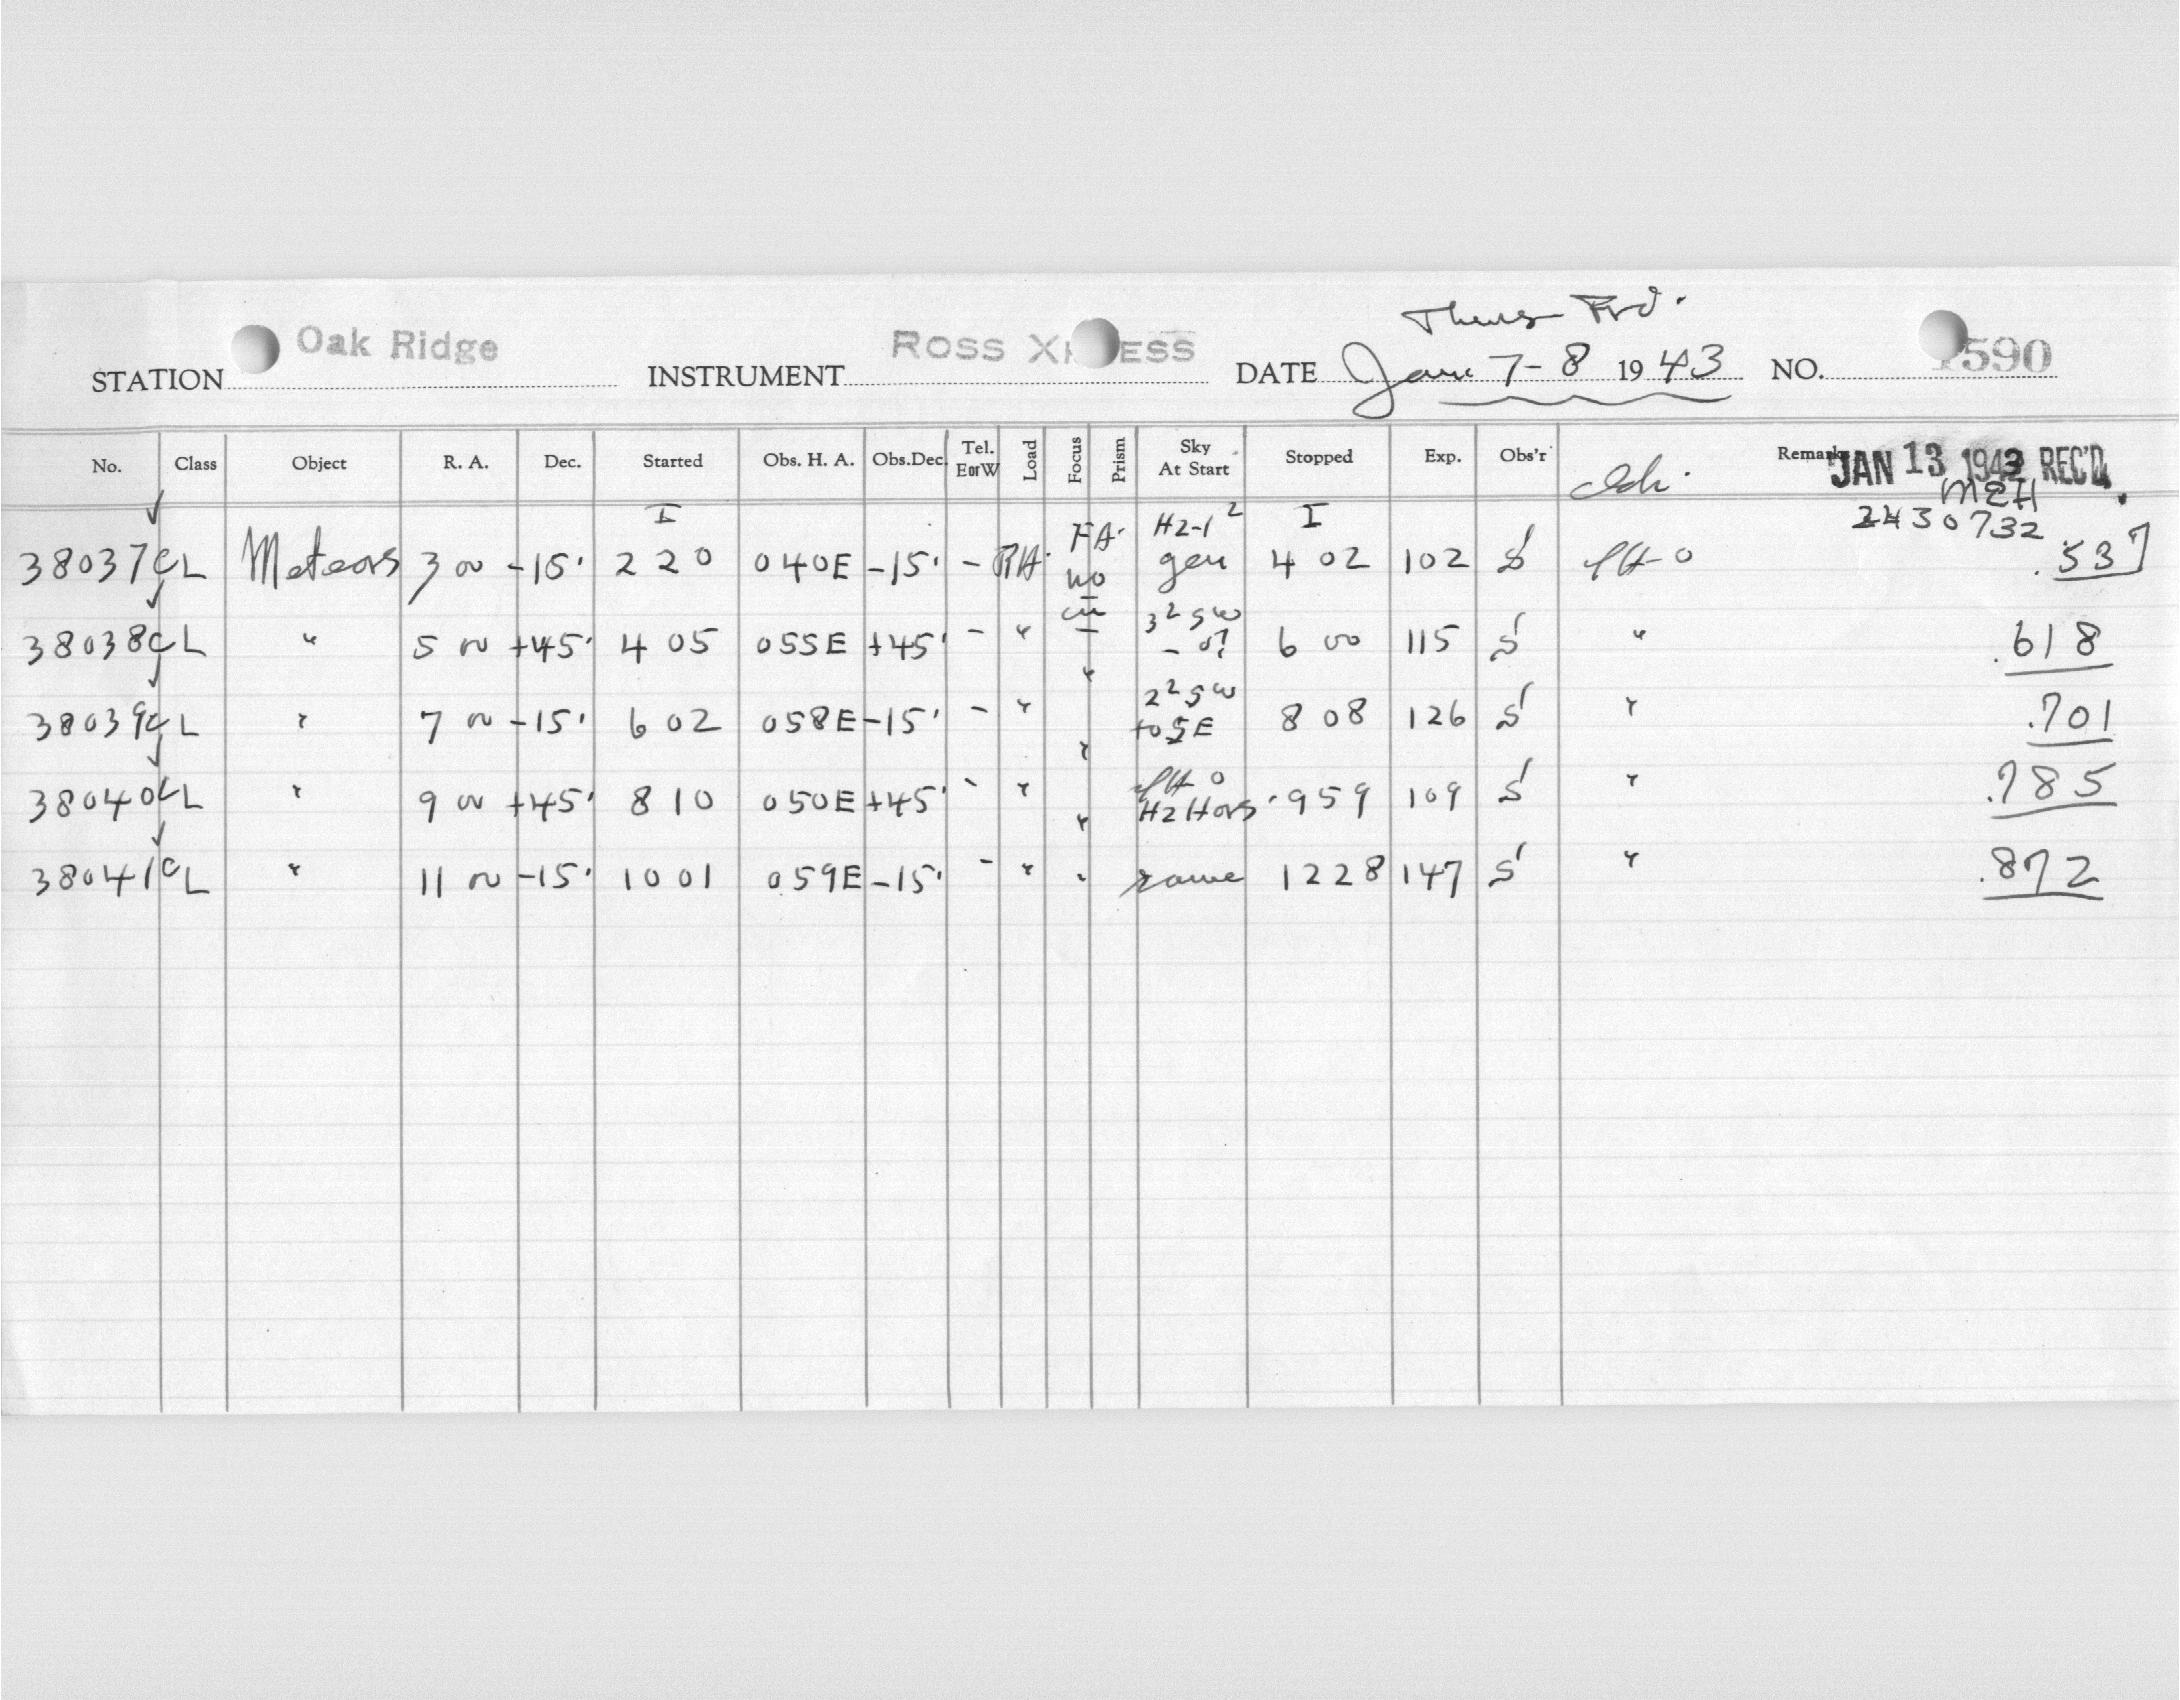 Thurs Frd.
STATION Oak Ridge INSTRUMENT ROSS X ESS DATE Jan 7-8 1943 NO. 1590
No. Class Object R. A. Dec. Started Obs. H. A. Obs.Dec. Tel. E or W Load Focus Prism Sky At Start Stopped Exp. Obs'r Remarks
JAN 13 1943 REC'D.
MEH
2430732
I FA. H2-1² I
38037 CL Meteors 3 00 -15' 2 20 040E -15' - RA. no gen 4 02 102 S .537
38038 CL " 5 00 +45' 4 05 055E +45' - " 3² SW 6 00 115 S " .618
38039 CL " 7 00 -15' 6 02 058E -15' - " " 2² SW to SE 8 08 126 S " .701
38040 CL " 9 00 +45' 8 10 050E +45' - " " H2 Hors. 9 59 109 S " .785
38041 CL " 11 00 -15' 10 01 059E -15' - " " same 12 28 147 S " .872